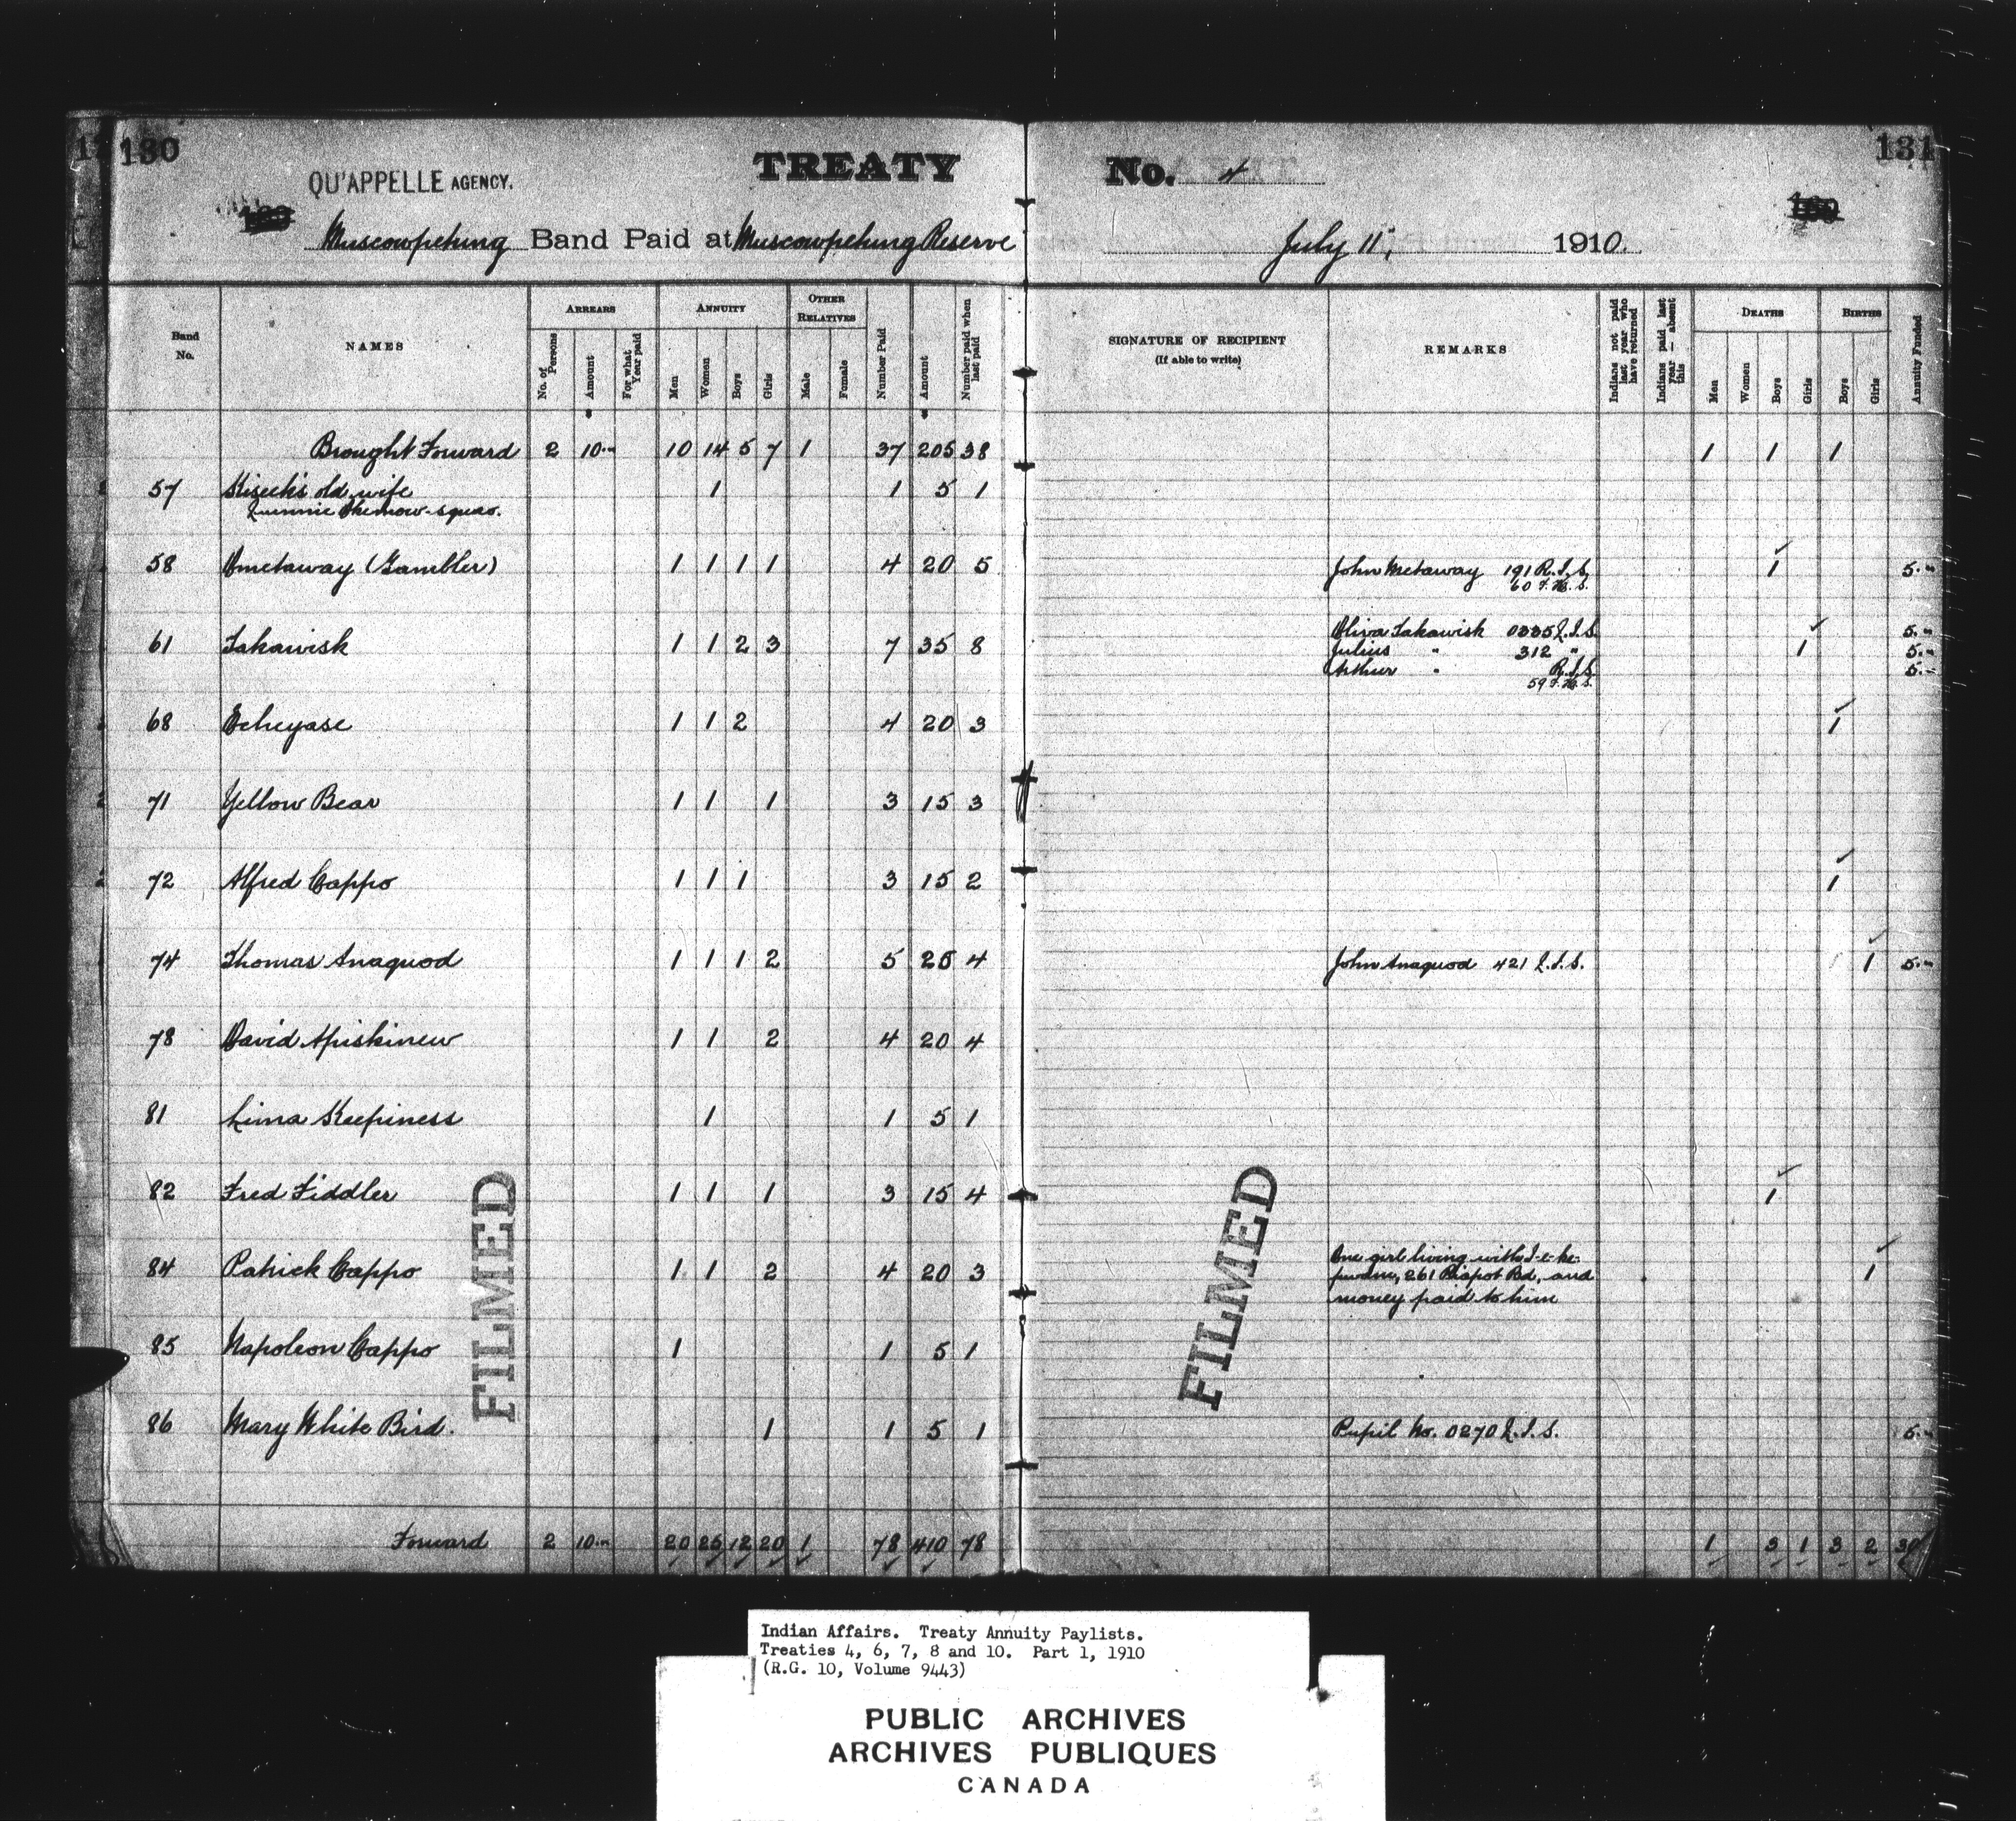 130
131
QU'APPELLE AGENCY.
TREATY No. 4
Muscowpetung Band Paid at Muscowpetung Reserve July 11, 1910.
Band No. NAMES ARREARS ANNUITY OTHER RELATIVES Number Paid Amount Number paid when last paid
No. of Persons Amount For what Year paid Men Women Boys Girls Male Female
SIGNATURE OF RECIPIENT (If able to write) REMARKS Indians not paid last year who have returned Indians paid last year — absent this DEATHS BIRTHS Annuity Funded
Men Women Boys Girls Boys Girls
Brought Forward 2 10.00 10 14 5 7 1 37 205 38 1 1 1
57 Kiseek's old wife 1 1 5 1
58 Ometaway (Gambler) 1 1 1 1 4 20 5 John Metaway 191 R.I.S. 1 5.00
60 F.H.S.
61 Takawisk 1 1 2 3 7 35 8 Oliva Takawisk 0335 Q.I.S. 1 5.00
Julius " 312 " 5.00
Arthur " R.I.S. 5.00
59 F.H.S.
68 Echeyase 1 1 2 4 20 3 1
71 Yellow Bear 1 1 1 3 15 3
72 Alfred Cappo 1 1 1 3 15 2 1
74 Thomas Anaquod 1 1 1 2 5 25 4 John Anaquod 421 Q.I.S. 1 5.00
78 David Apiskinew 1 1 2 4 20 4
81 Lima Keepiness 1 1 5 1
82 Fred Fiddler 1 1 1 3 15 4 1
84 Patrick Cappo 1 1 2 4 20 3 One girl living with 1
261 Piapot Bd, and
money paid to him
85 Napoleon Cappo 1 1 5 1
86 Mary White Bird. 1 1 5 1 Pupil No. 0270 Q.I.S. 5.00
Forward 2 10.00 20 25 12 20 1 78 410 78 1 3 1 3 2 30
FILMED
FILMED
Indian Affairs. Treaty Annuity Paylists.
Treaties 4, 6, 7, 8 and 10. Part 1, 1910
(R.G. 10, Volume 9443)
PUBLIC ARCHIVES
ARCHIVES PUBLIQUES
CANADA